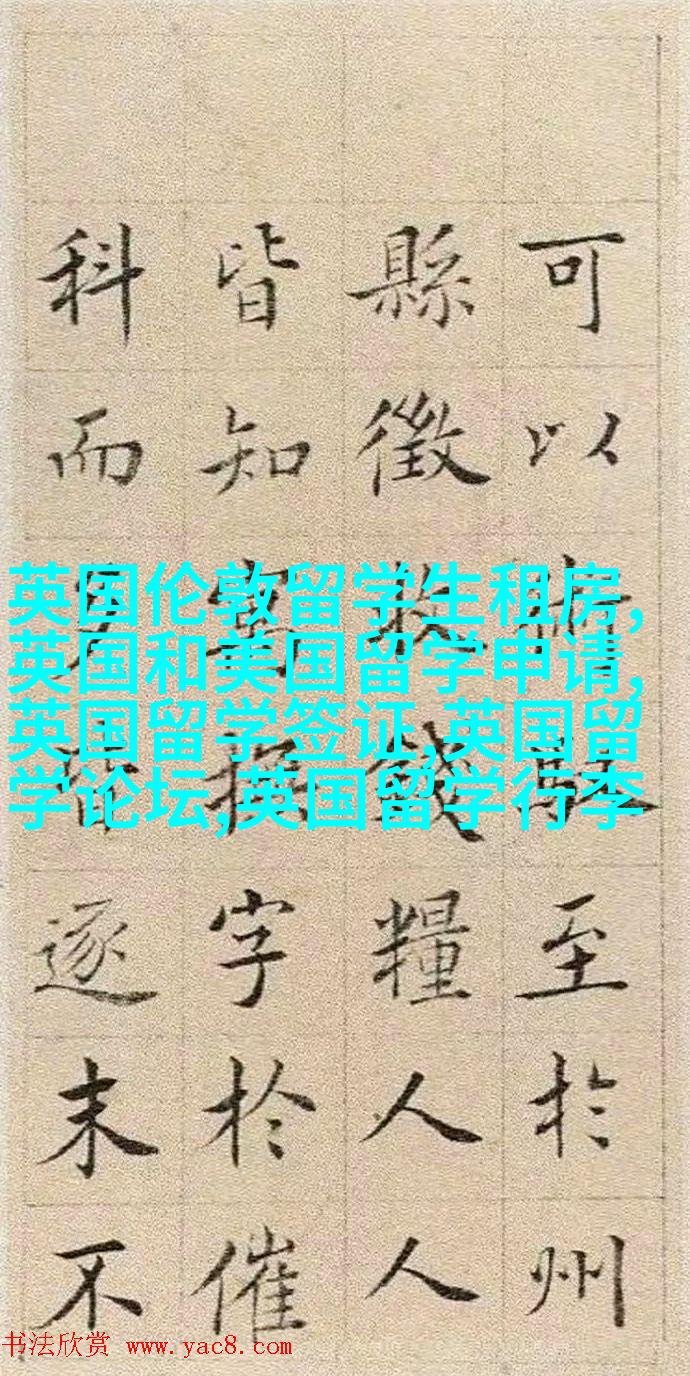 可以至於州
縣徵收錢糧人人
皆知寓撫字於催
科而逐末不
英国伦敦留学生租房,
英国和美国留学申请,
英国留学签证,英国留
学论坛,英国留学行李
书法欣赏 www.yac8.com